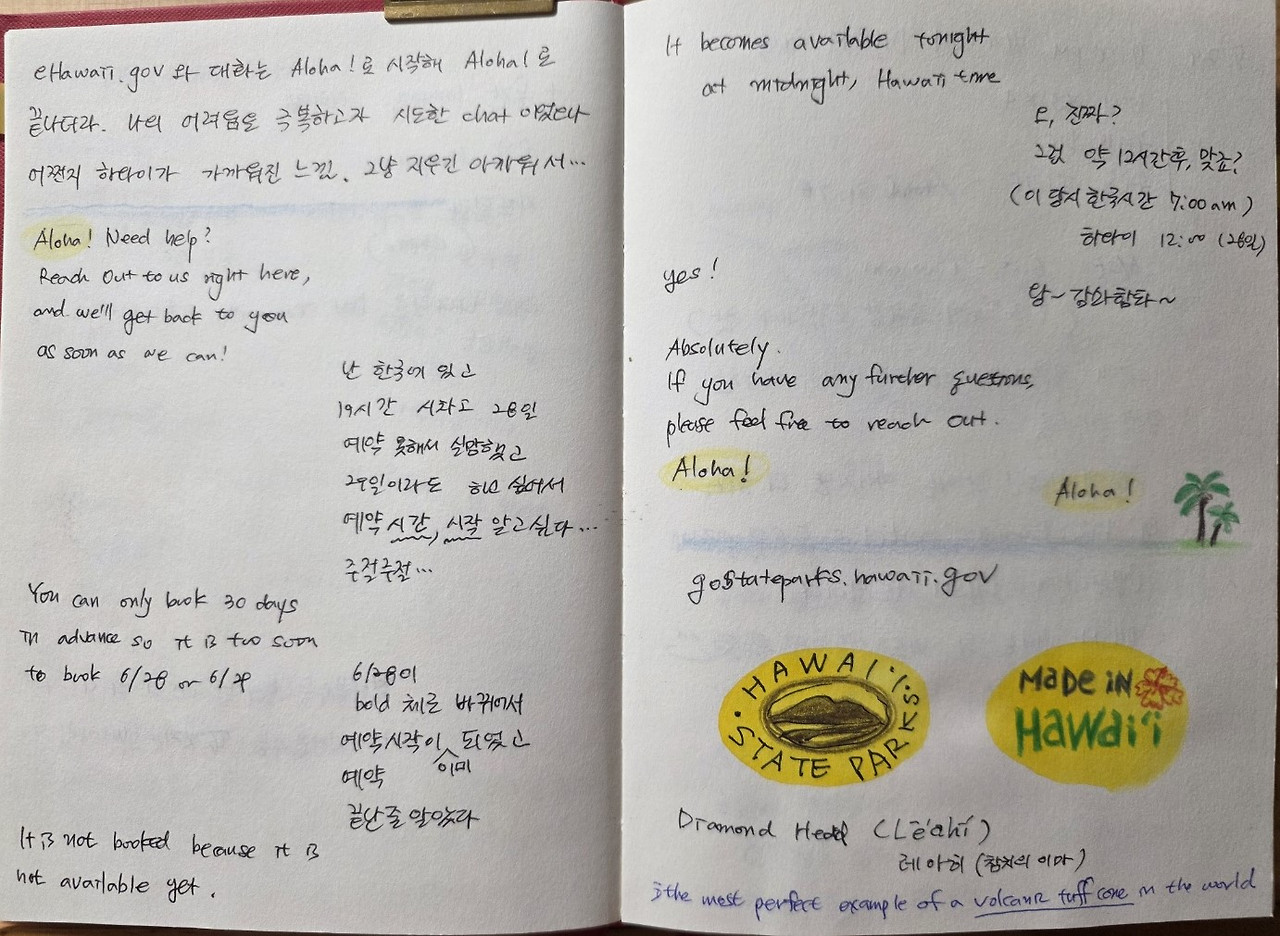 eHawaii.gov 와 대화는 Aloha!로 시작해 Aloha!로
끝나더라. 나의 어려움을 극복하고자 시도한 chat 이었으나
어쩐지 하와이가 가까워진 느낌. 그냥 지우긴 아까워서...
Aloha! Need help?
Reach out to us right here,
and we'll get back to you
as soon as we can!
난 한국에 있고
19시간 시차고 28일
예약 못해서 실망했고
29일이라도 하고 싶어서
예약 시간, 시작 알고싶다...
주절주절...
You can only book 30 days
in advance so it is too soon
to book 6/28 or 6/29
6/28이
bold 체로 바뀌어서
예약시작이 이미 되었고
예약
끝난줄 알았다
It is not booked because it is
not available yet.
It becomes available tonight
at midnight, Hawaii time
오, 진짜?
그럼 약 12시간후, 맞죠?
(이 당시 한국시간 7:00 am)
하와이 12:00 (28일)
yes!
와~ 감솨함다~
Absolutely.
If you have any further questions,
please feel free to reach out.
Aloha!
Aloha!
gostateparks.hawaii.gov
HAWAI·I
STATE PARKS
MADE IN
HAWAI'I
Diamond Head (Lē'ahi)
레아히 (참치의 이마)
is the most perfect example of a volcanic tuff cone in the world